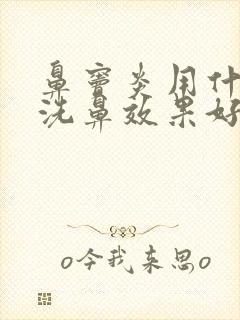 鼻窦炎用什
洗鼻效果好
o今我来思o